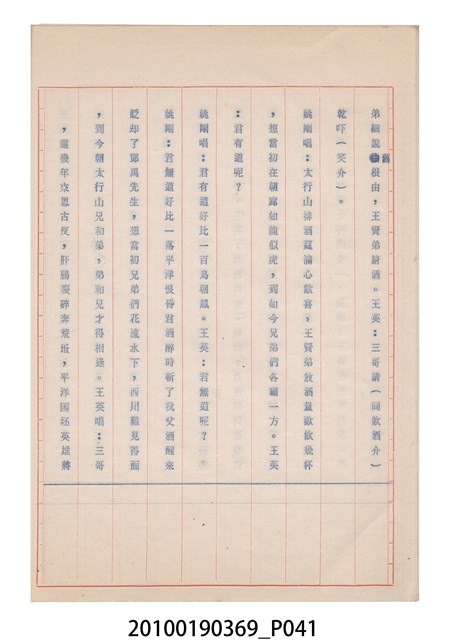 弟細說舊根由，王賢弟請酒。王英：三哥請（同飲酒介）
乾吓（笑介）。
姚剛唱：太行山排酒筵滿心歡喜，王賢弟放酒量歡飲幾杯
，想當初在朝廊如龍似虎，到如今兄弟們各霸一方。王英
：君有道呢？
姚剛唱：君有道好比一百鳥朝鳳。王英：君無道呢？
姚剛：君無道好比一落平洋恨昏君酒醉時斬了我父酒醒來
貶却了鄧禹先生，想當初兄弟們花流水下，西川難見得面
，到今朝太行山兄和弟，弟和兄才得相逢。王英唱：三哥
，這幾年京思古皮，肝腸裂碎奔荒坵，平洋困坯英雄將
20100190369_P041